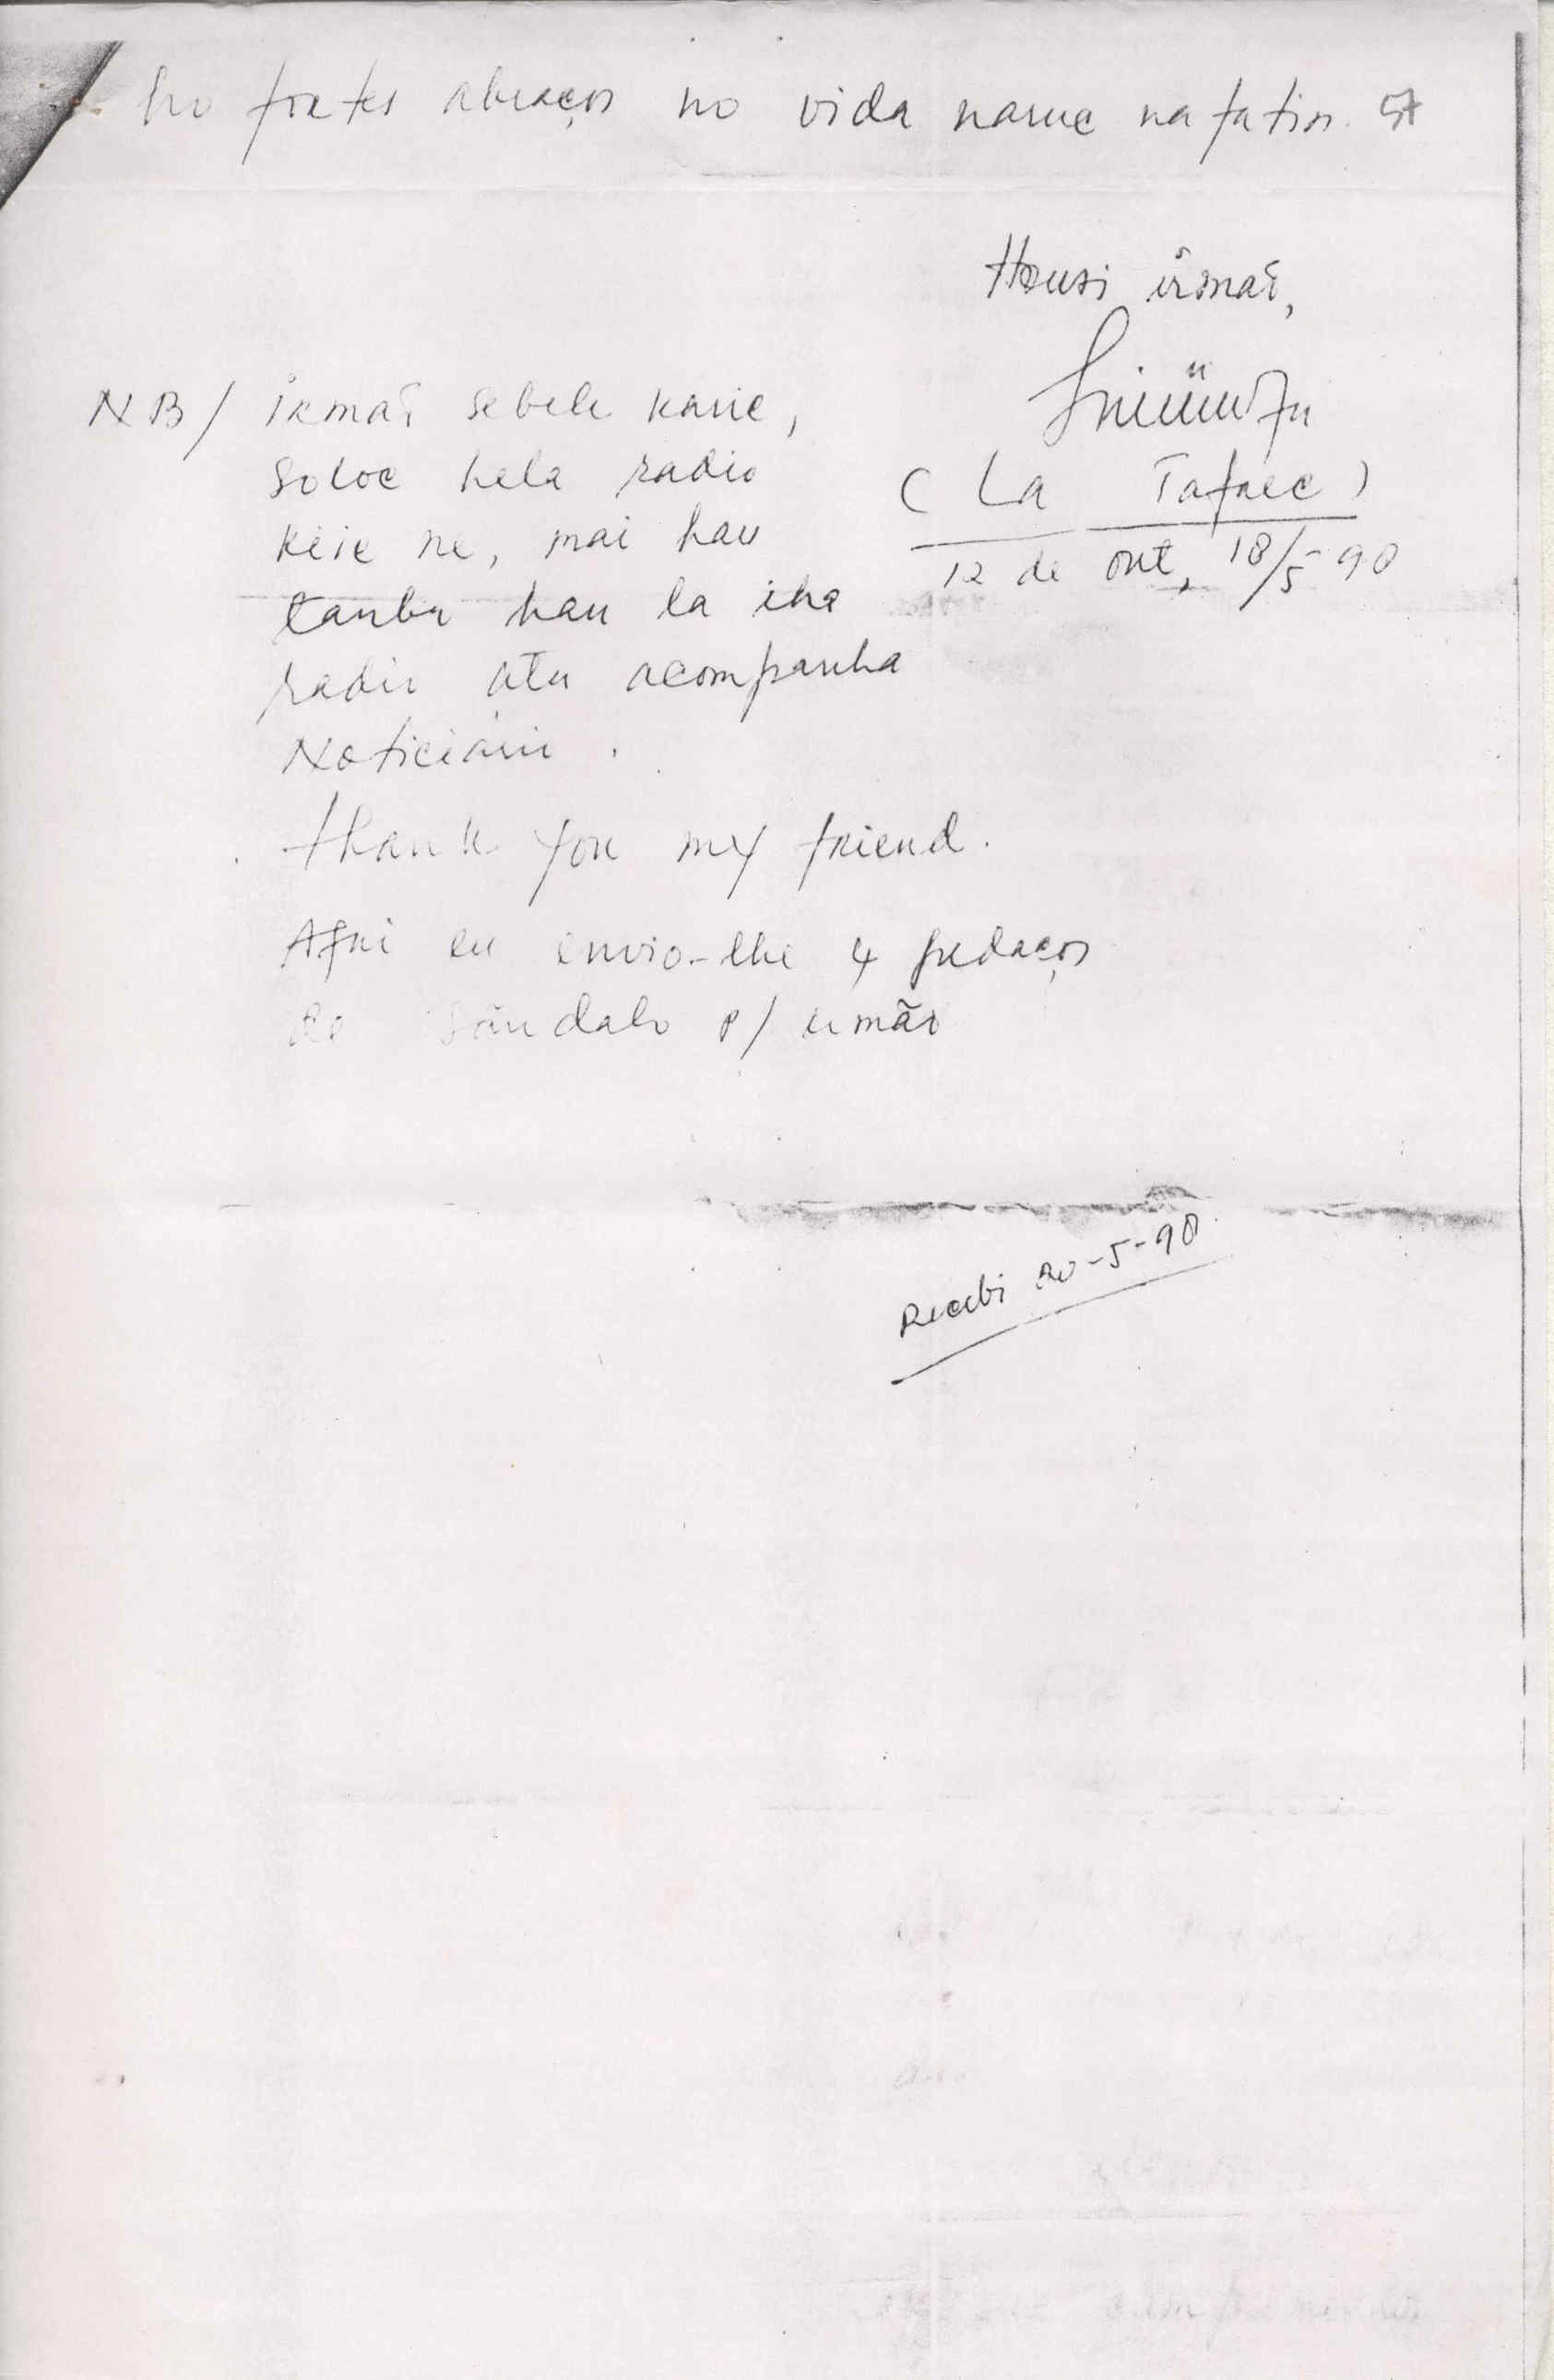 ho fortes abraços no vida naruc nafatin.
Housi irmaõ,
(La Tafaec)
12 de out, 18/5 90
NB/ Irmaõ sebele karic,
soloc hela radio
kiic ne, mai hau
tanba hau la iha
radio atu acompanha
Noticiário.
thank you my friend.
Aqui eu envio-lhe 4 pedaços
de sândalo p/ irmão
Recebi 20-5-90